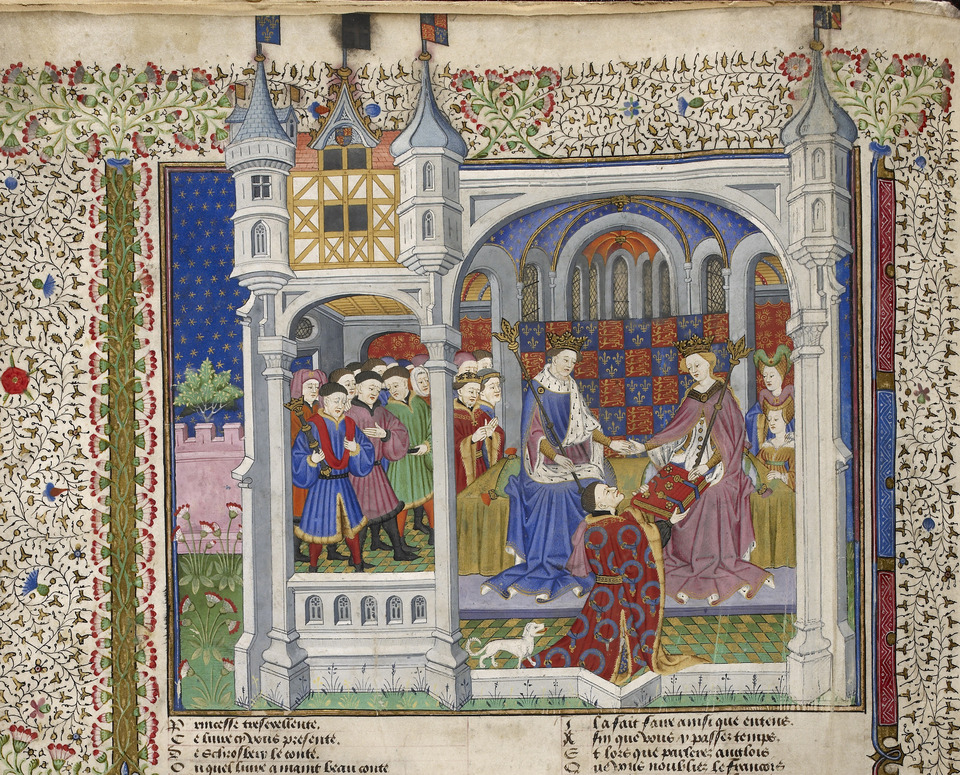 Princesse tresexcellente,
Ce liure cy vous presente.
De Schrosbery le conte.
Ou quel liure a maint beau conte
Il a fait faire ainsi que entens.
Afin que vous y passez temps.
Et lors que parlerez anglois
Que vous noubliez le francois